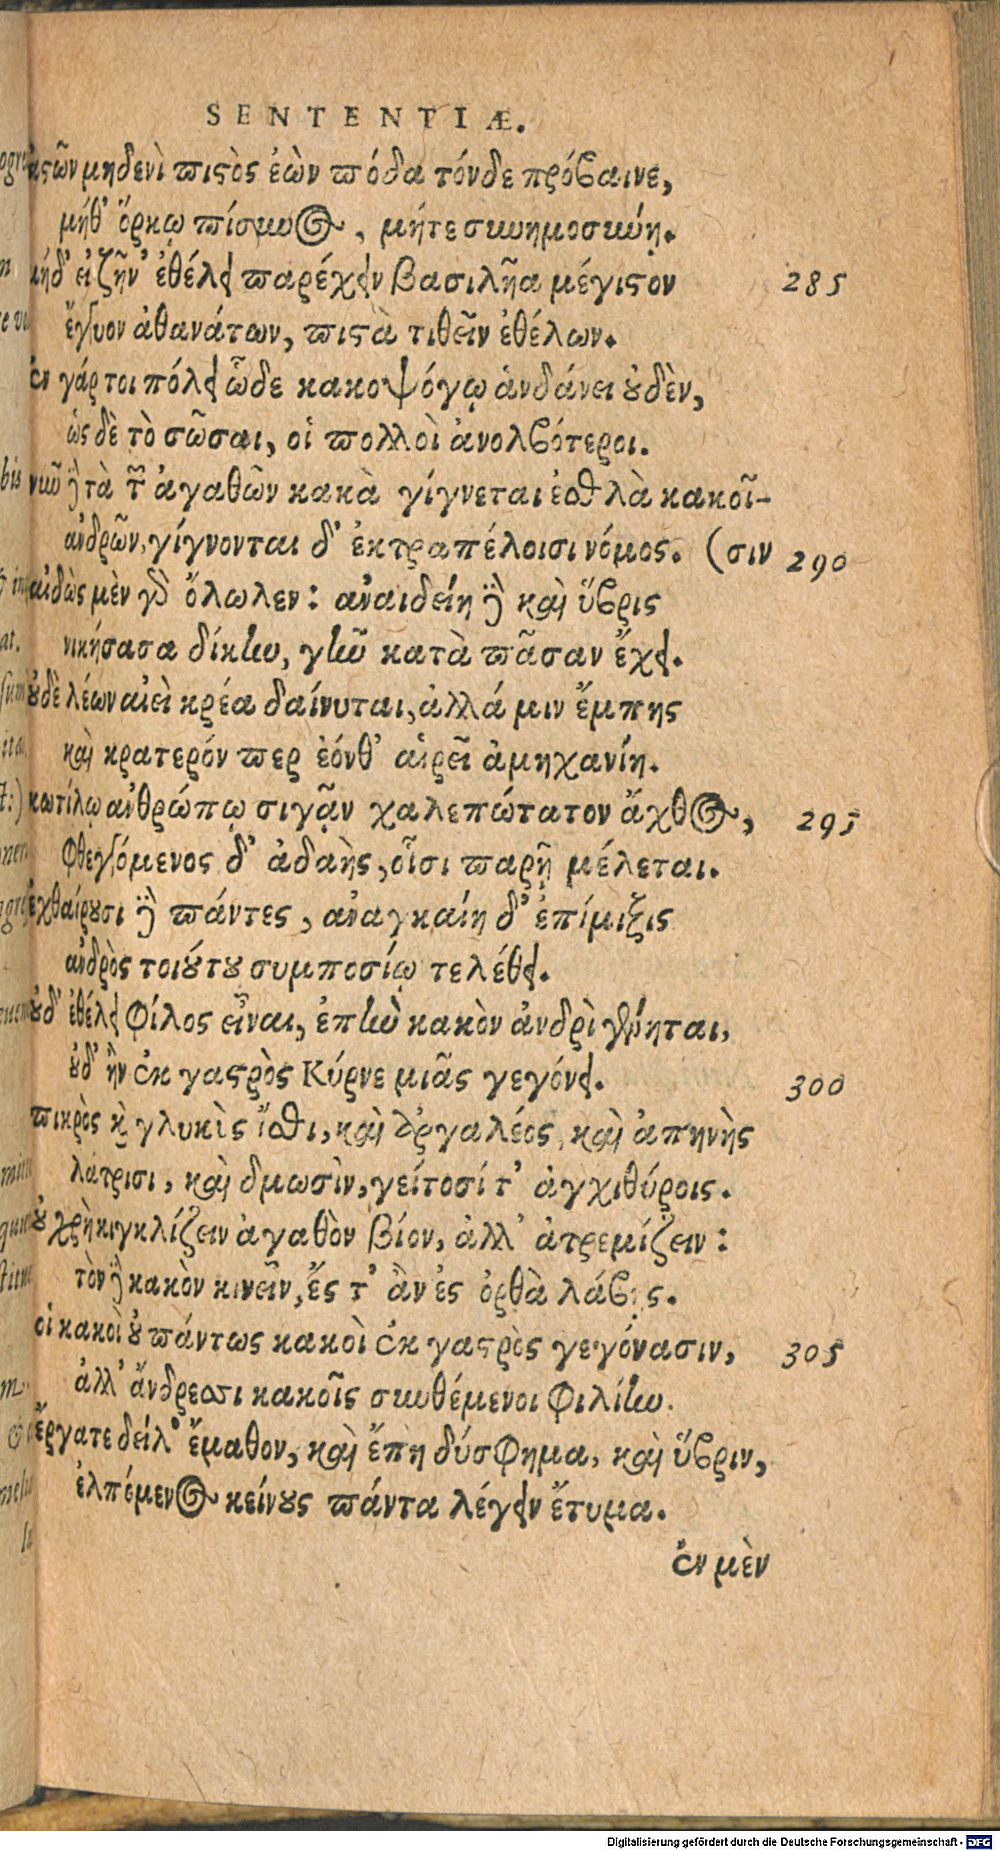 SENTENTIÆ.
ἀστῶν μηδενὶ πιστὸς ἐὼν πόδα τόνδε πρόβαινε,
μήθ' ὅρκῳ πίσυνος, μήτε συνημοσύνῃ.
μήδ' εἰ ζῆν' ἐθέλει παρέχειν βασιλῆα μέγιστον 285
ἔγγυον ἀθανάτων, πιστὰ τιθεῖν ἐθέλων.
ἐν γάρ τοι πόλει ὧδε κακοψόγῳ ἁνδάνει οὐδὲν,
ὡς δὲ τὸ σῶσαι, οἱ πολλοὶ ἀνολβότεροι.
νῦν δὲ τὰ τῶν ἀγαθῶν κακὰ γίγνεται ἐσθλὰ κακοῖ-
ἀνδρῶν, γίγνονται δ' ἐκτραπέλοισι νόμος. (σιν 290
αἰδὼς μὲν γὰρ ὄλωλεν: ἀναιδείη δὲ καὶ ὕβρις
νικήσασα δίκην, γῆν κατὰ πᾶσαν ἔχει.
οὐδὲ λέων αἰεὶ κρέα δαίνυται, ἀλλά μιν ἔμπης
καὶ κρατερόν περ ἐόνθ' αἱρεῖ ἀμηχανίη.
κωτίλῳ ἀνθρώπῳ σιγᾷν χαλεπώτατον ἄχθος, 295
φθεγγόμενος δ' ἀδαὴς, οἷσι παρῇ μέλεται.
ἐχθαίρουσι δὲ πάντες, ἀναγκαίη δ' ἐπίμιξις
ἀνδρὸς τοιούτου συμποσίῳ τελέθει.
οὐδ' ἐθέλει φίλος εἶναι, ἐπὴν κακὸν ἀνδρὶ γένηται,
οὐδ' ἢν ἐκ γαστρὸς Κύρνε μιᾶς γεγόνει. 300
πικρὸς καὶ γλυκὺς ἴσθι, καὶ ἀργαλέος, καὶ ἀπηνὴς
λάτρισι, καὶ δμωσὶν, γείτοσί τ' ἀγχιθύροις.
οὐ χρὴ κιγκλίζειν ἀγαθὸν βίον, ἀλλ' ἀτρεμίζειν:
τὸν δὲ κακὸν κινεῖν, ἔς τ' ἂν ἐς ὀρθὰ λάβῃς.
οἱ κακοὶ οὐ πάντως κακοὶ ἐκ γαστρὸς γεγόνασιν, 305
ἀλλ' ἄνδρεσσι κακοῖς συνθέμενοι φιλίην.
ἔργατε δείλ' ἔμαθον, καὶ ἔπη δύσφημα, καὶ ὕβριν,
ἐλπόμενος κείνους πάντα λέγειν ἔτυμα.
ἐν μὲν
Digitalisierung gefördert durch die Deutsche Forschungsgemeinschaft - DFG